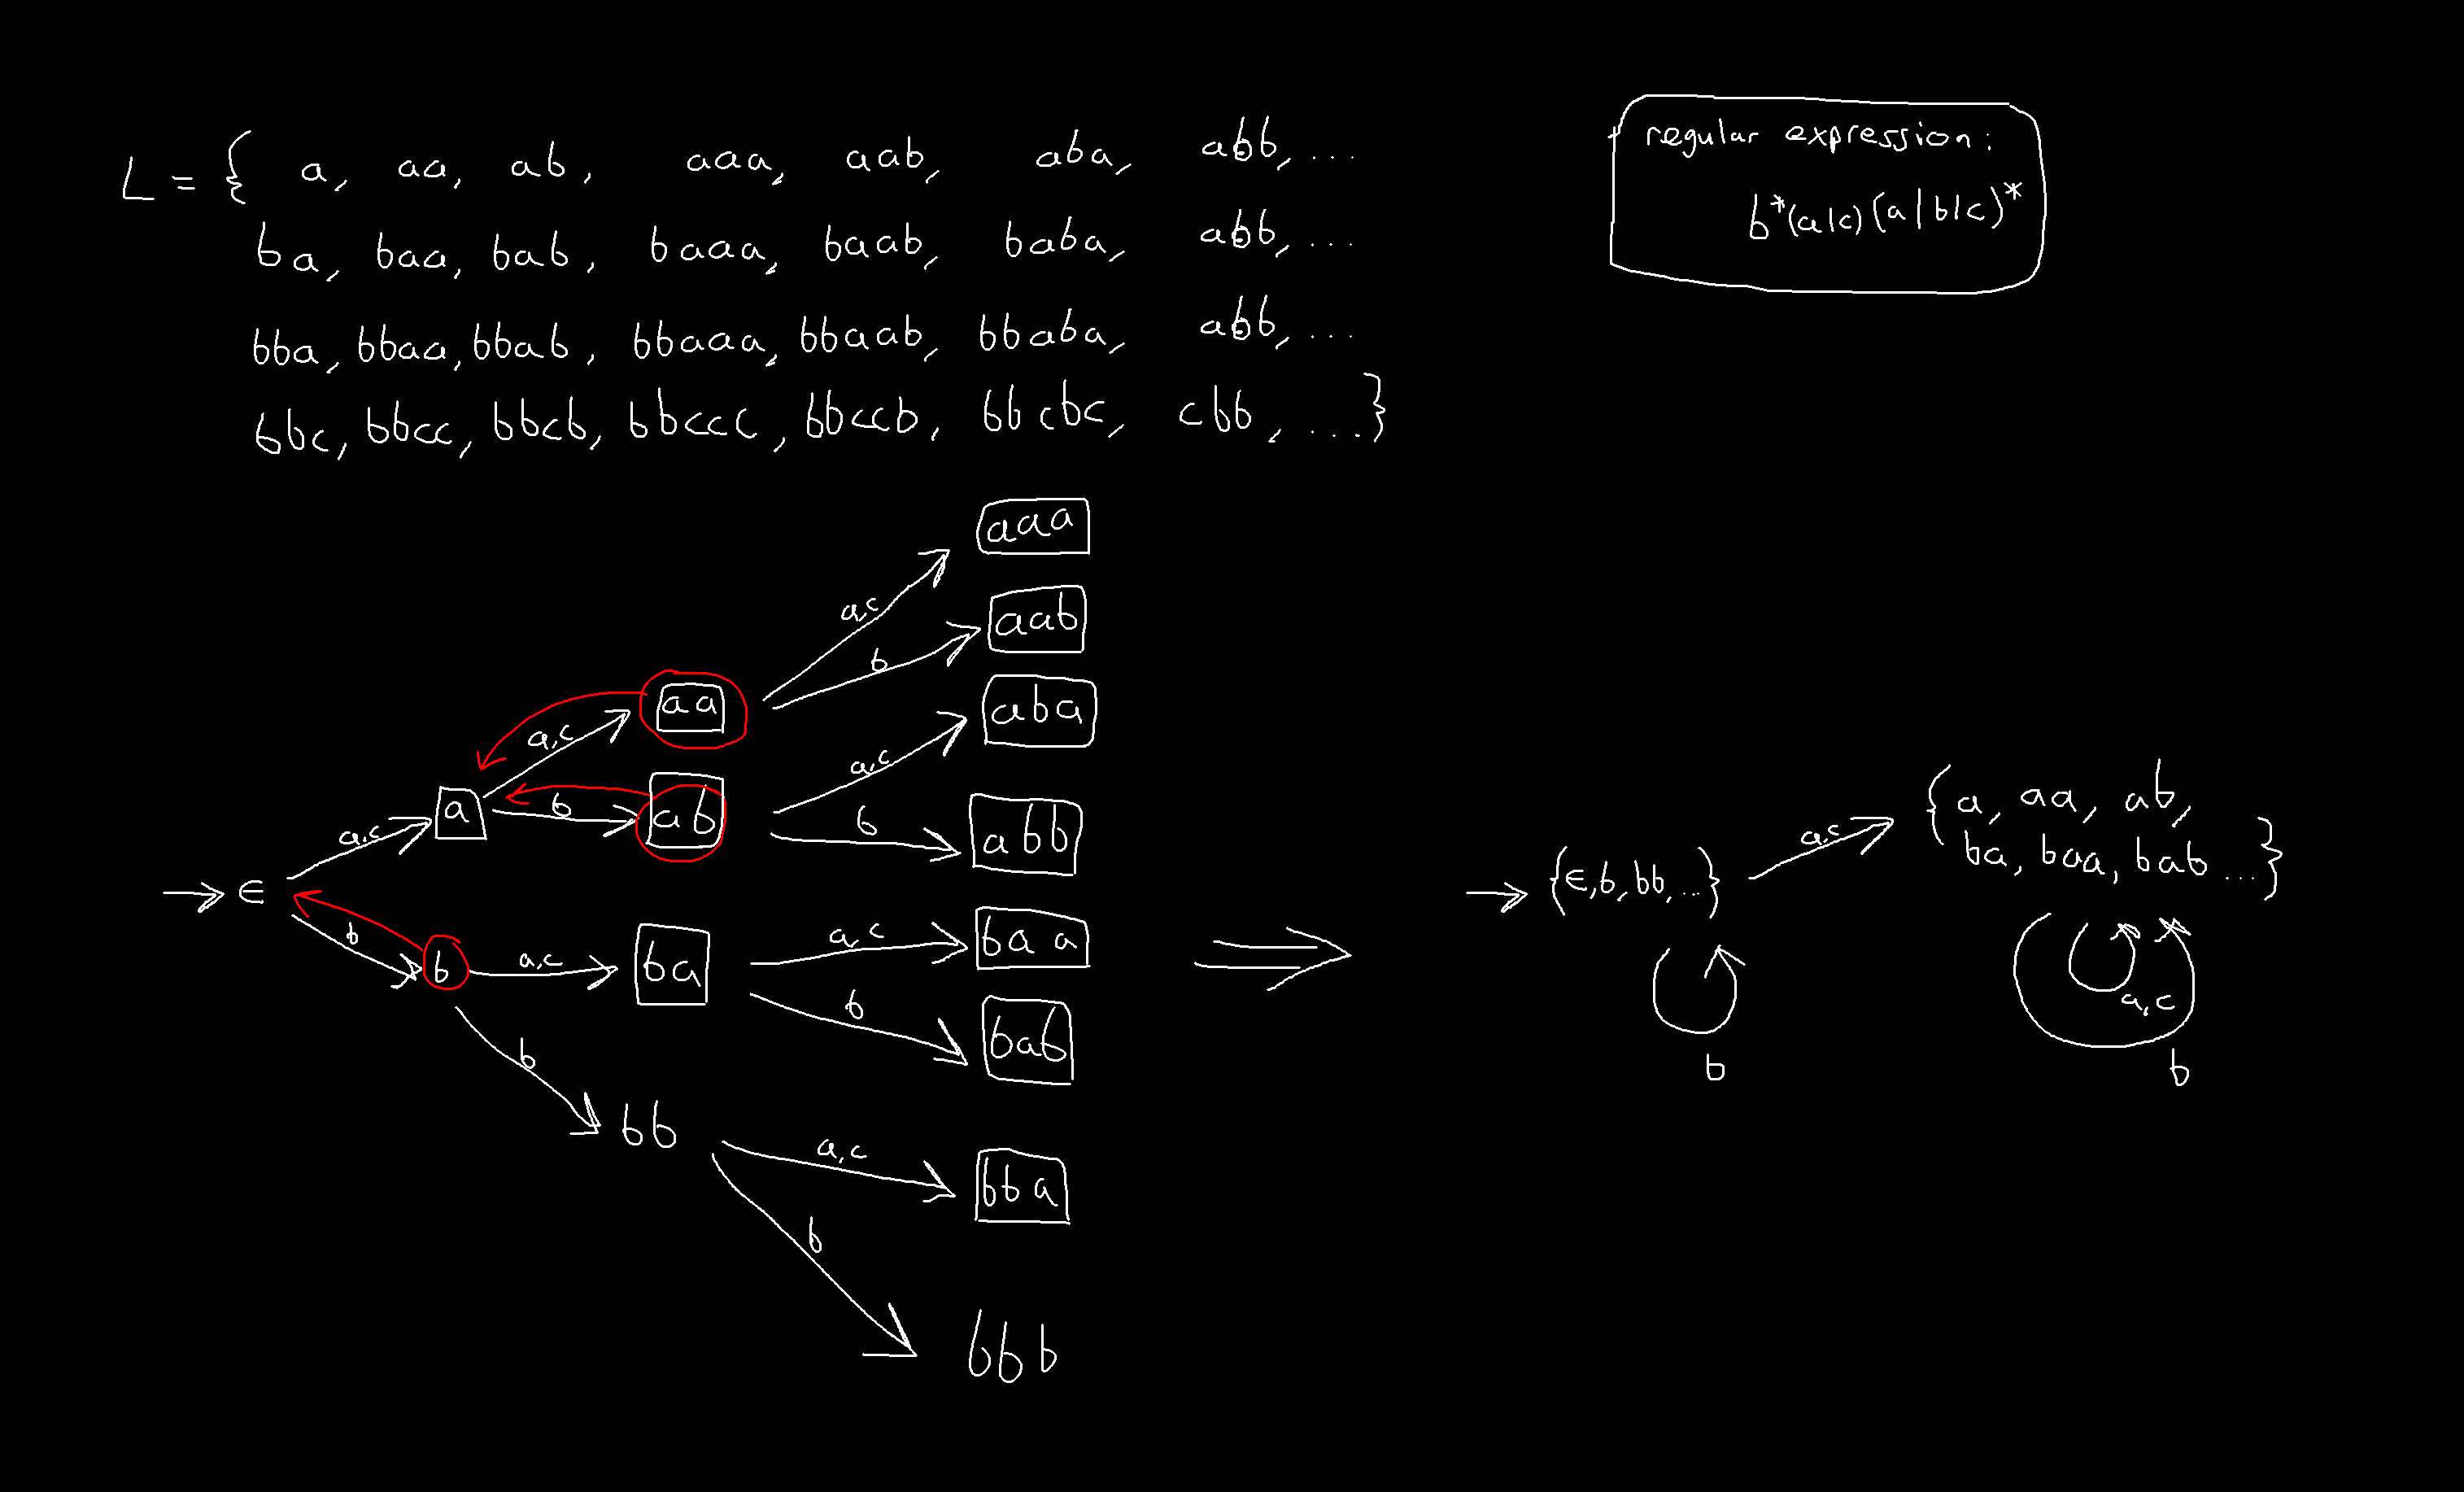 L = { a, aa, ab, aaa, aab, aba, abb, ...
ba, baa, bab, baaa, baab, baba, abb, ...
bba, bbaa, bbab, bbaaa, bbaab, bbaba, abb, ...
bbc, bbcc, bbcb, bbccc, bbccb, bbcbc, cbb, ... }
regular expression:
b*(a|c)(a|b|c)*
aaa
a,c
aab
b
aa
aba
a,c
a,c
a
b
ab
b
abb
a,c
→ ∈
b
b
a,c
ba
a,c
baa
b
bab
b
bb
a,c
bba
b
bbb
⇒
→ {∈, b, bb, ...}
a,c
{a, aa, ab,
ba, baa, bab ...}
b
a,c
b